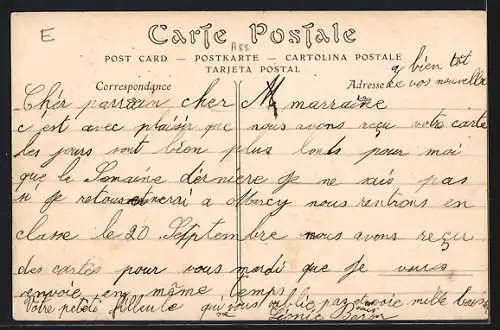 E
Carte Postale
ASS
POST CARD — POSTKARTE — CARTOLINA POSTALE
TARJETA POSTAL
Correspondance
Adresse
a bien tôt
de vos nouvelles
Chèr parrain cher marraine
c'est avec plaisir que nous avons reçu votre carte
les jours sont bien plus lonts pour moi
que le Semaine dernière Je ne sais pas
si Je retournerai a Mercy nous rentrons en
classe le 20 Septembre nous avons reçu
des cartes pour vous mardi que Je vous
renvoie en même temps
Votre petite filleule qui vous oublie pas envoie mille baisers
Léonie Baron